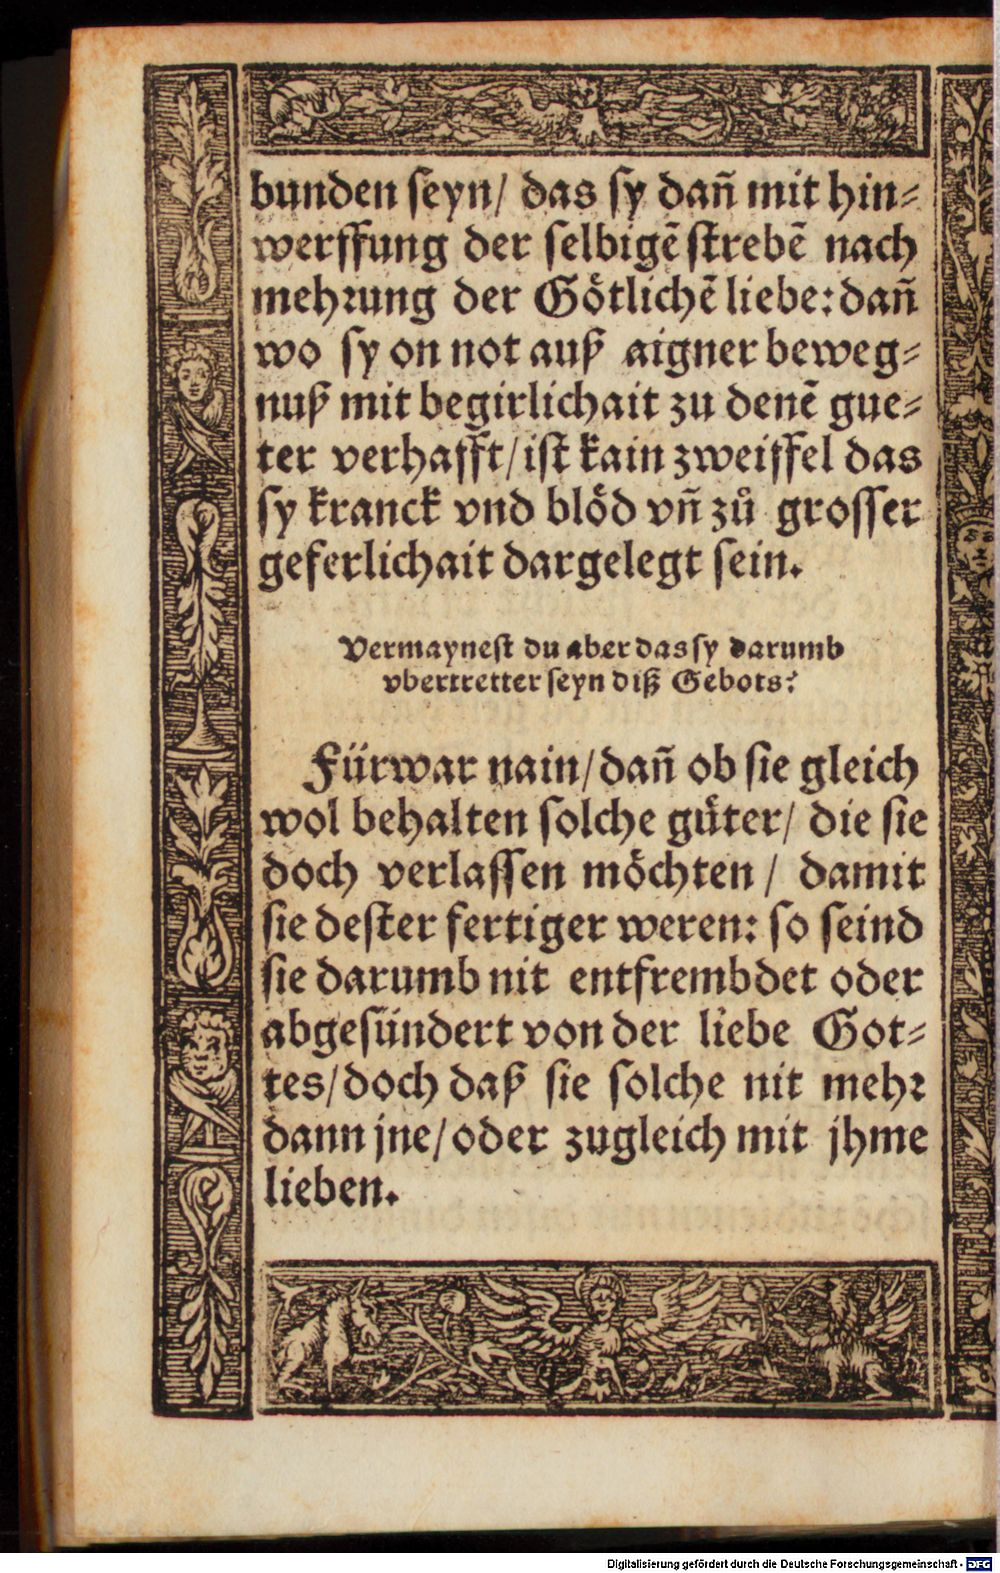 bunden seyn/ das sy dañ mit hin⸗
werffung der selbigẽ strebẽ nach
mehrung der Götlichẽ liebe: dañ
wo sy on not auß aigner beweg⸗
nuß mit begirlichait zu denẽ gue⸗
ter verhafft/ ist kain zweiffel das
sy kranck vnd blöd vñ zů grosser
geferlichait dargelegt sein.
Vermaynest du aber das sy darumb
vbertretter seyn diß Gebots?
Fürwar nain/ dañ ob sie gleich
wol behalten solche güter/ die sie
doch verlassen möchten/ damit
sie dester fertiger weren: so seind
sie darumb nit entfrembdet oder
abgesündert von der liebe Got⸗
tes/ doch daß sie solche nit mehr
dann jne/ oder zugleich mit jhme
lieben.
Digitalisierung gefördert durch die Deutsche Forschungsgemeinschaft - DFG